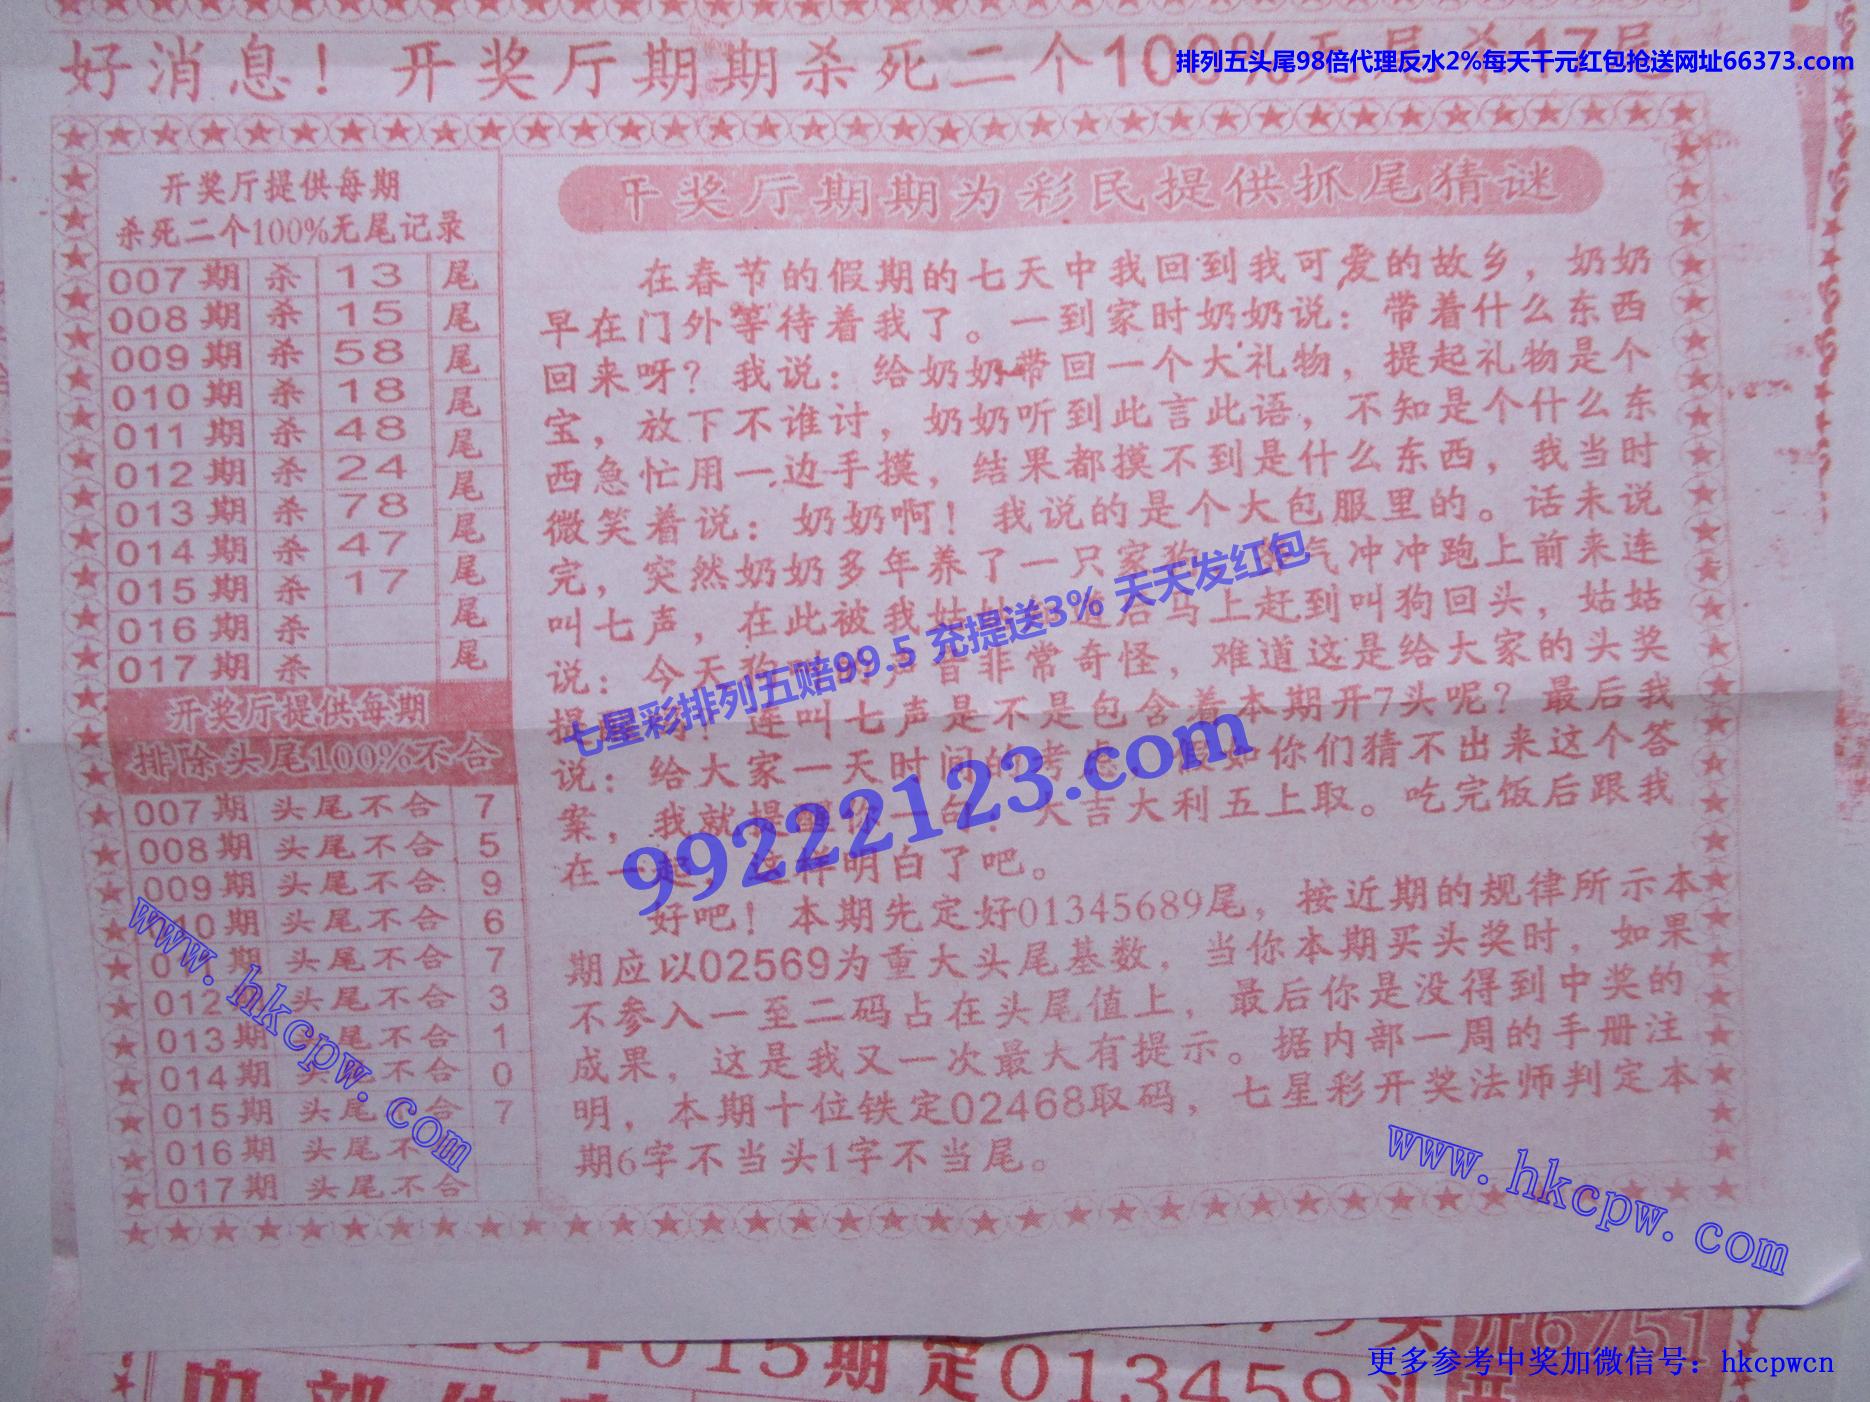 排列五头尾98倍代理反水2%每天千元红包抢送网址66373.com
好消息！开奖厅期期杀死二个100%无尾杀17尾
开奖厅提供每期
杀死二个100%无尾记录
007期 杀 13 尾
008期 杀 15 尾
009期 杀 58 尾
010期 杀 18 尾
011期 杀 48 尾
012期 杀 24 尾
013期 杀 78 尾
014期 杀 47 尾
015期 杀 17 尾
016期 杀 尾
017期 杀
开奖厅提供每期
排除头尾100%不合
007期 头尾不合 7
008期 头尾不合 5
009期 头尾不合 9
010期 头尾不合 6
011期 头尾不合 7
012期 头尾不合 3
013期 头尾不合 1
014期 头尾不合 0
015期 头尾不合 7
016期 头尾不
017期 头尾不合
开奖厅期期为彩民提供抓尾猜谜
在春节的假期的七天中我回到我可爱的故乡，奶奶
早在门外等待着我了。一到家时奶奶说：带着什么东西
回来呀？我说：给奶奶带回一个大礼物，提起礼物是个
宝，放下不谁讨，奶奶听到此言此语，不知是个什么东
西急忙用一边手摸，结果都摸不到是什么东西，我当时
微笑着说：奶奶啊！我说的是个大包服里的。话未说
完，突然奶奶多年养了一只家狗 气冲冲跑上前来连
叫七声，在此被我姑姑 后马上赶到叫狗回头，姑姑
说：今天狗 声音非常奇怪，难道这是给大家的头奖
提 连叫七声是不是包含着本期开7头呢？最后我
说：给大家一天时间的考虑，假如你们猜不出来这个答
案，我就提醒你一句：大吉大利五上取。吃完饭后跟我
在一起，这样明白了吧。
好吧！本期先定好01345689尾，按近期的规律所示本
期应以02569为重大头尾基数，当你本期买头奖时，如果
不参入一至二码占在头尾值上，最后你是没得到中奖的
成果，这是我又一次最大有提示。据内部一周的手册注
明，本期十位铁定02468取码，七星彩开奖法师判定本
期6字不当头1字不当尾。
七星彩排列五赔99.5 充提送3% 天天发红包
99222123.com
www.hkcpw.com
www.hkcpw.com
015期定013459头
开6751
更多参考中奖加微信号：hkcpwcn